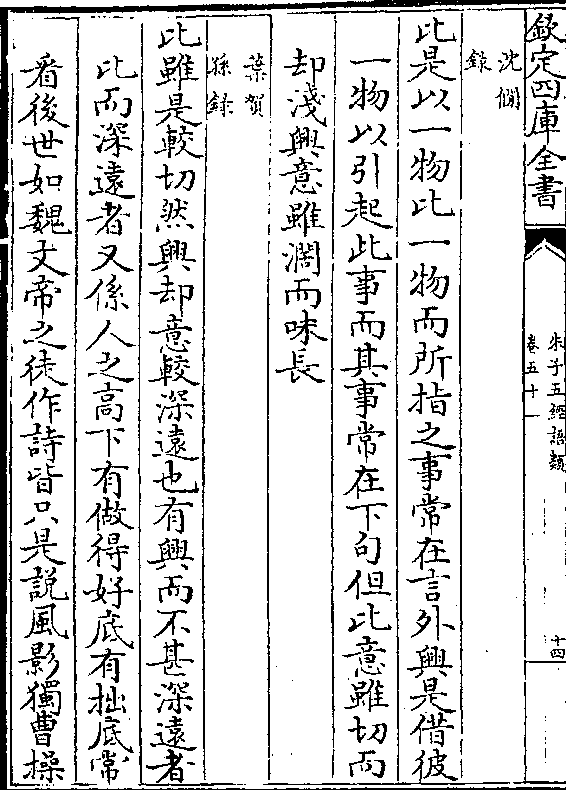 欽定四庫全書
朱子五經語類
卷五十一
十四
沈僩
錄
此是以一物比一物而所指之事常在言外興是借彼
一物以引起此事而其事常在下句但比意雖切而
却淺興意雖濶而味長
葉賀
孫錄
比雖是較切然興却意較深遠也有興而不甚深遠者
比而深遠者又係人之高下有做得好底有拙底常
看後世如魏文帝之徒作詩皆只是說風影獨曹操